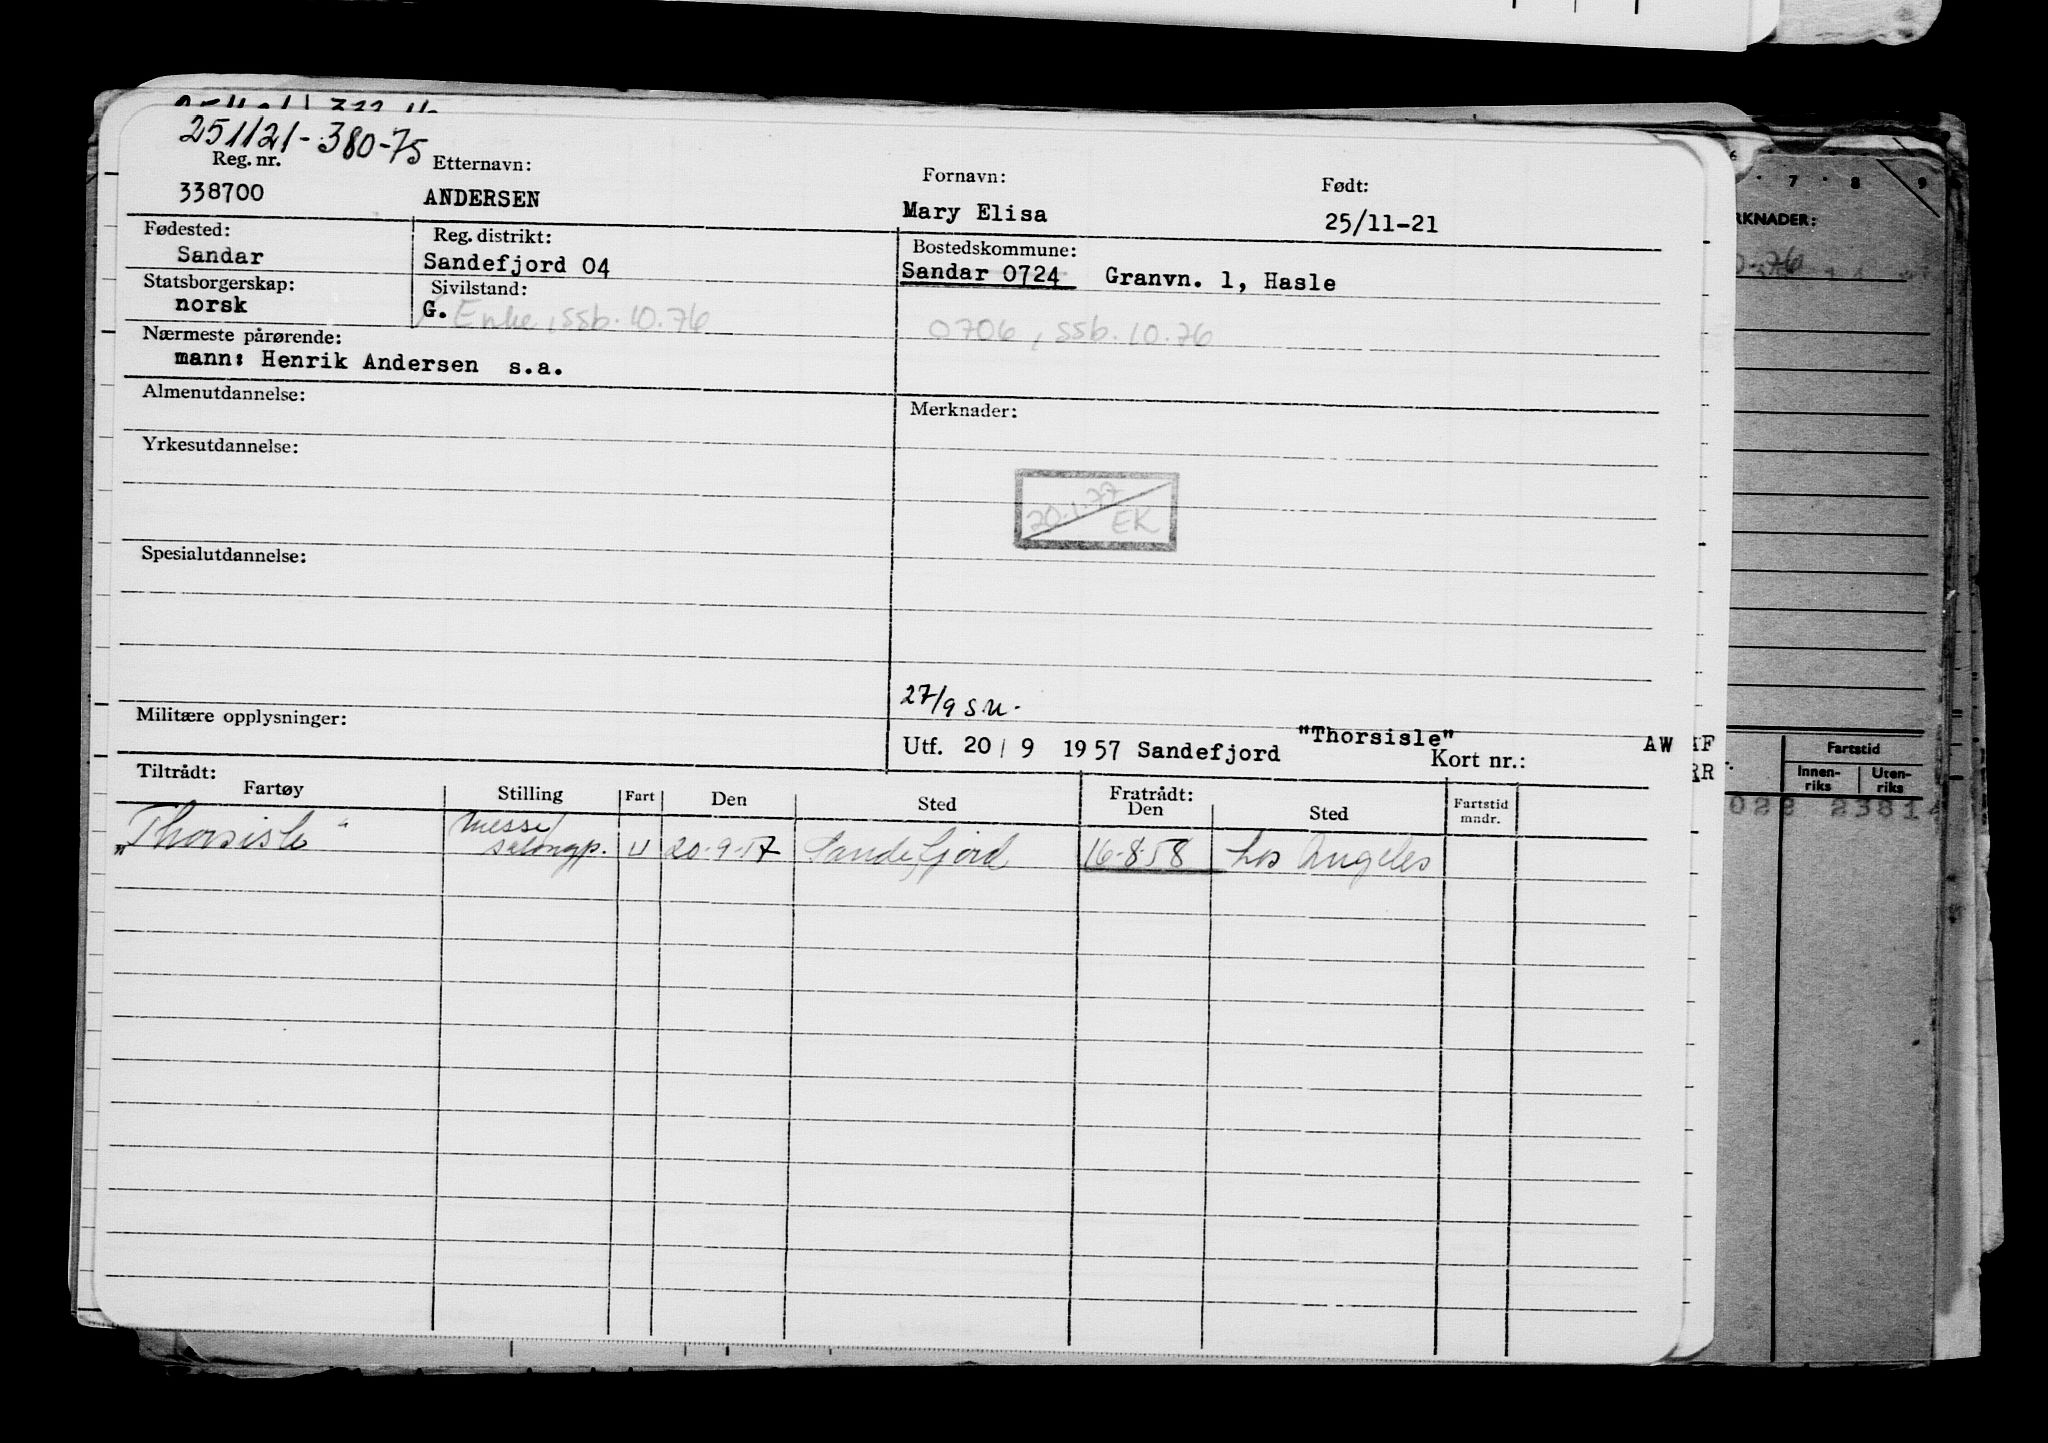 251121-380-75
Reg. nr. Etternavn: Fornavn: Født:
338700 ANDERSEN Mary Elisa 25/11-21
Fødested: Reg. distrikt: Bostedskommune:
Sandar Sandefjord 04 Sandar 0724 Granvn. 1, Hasle
Statsborgerskap: Sivilstand:
norsk G. Enke, ssb. 10.76 0706, ssb. 10.76
Nærmeste pårørende:
mann: Henrik Andersen s.a.
Almenutdannelse: Merknader:
Yrkesutdannelse:
20.1.77 EK
Spesialutdannelse:
27/9 S.U.
Militære opplysninger:
Utf. 20/9 1957 Sandefjord "Thorsisle" Kort nr.: AW
Tiltrådt: Fratrådt:
Fartøy Stilling Fart Den Sted Den Sted Fartstid mndr.
"Thorsisle" Messe/
salongp. U 20-9-57 Sandefjord 16-8-58 Los Angeles
6
7 8 9
RKNADER:
0-76
Fartstid
Innen-
riks
Uten-
riks
AF
RR